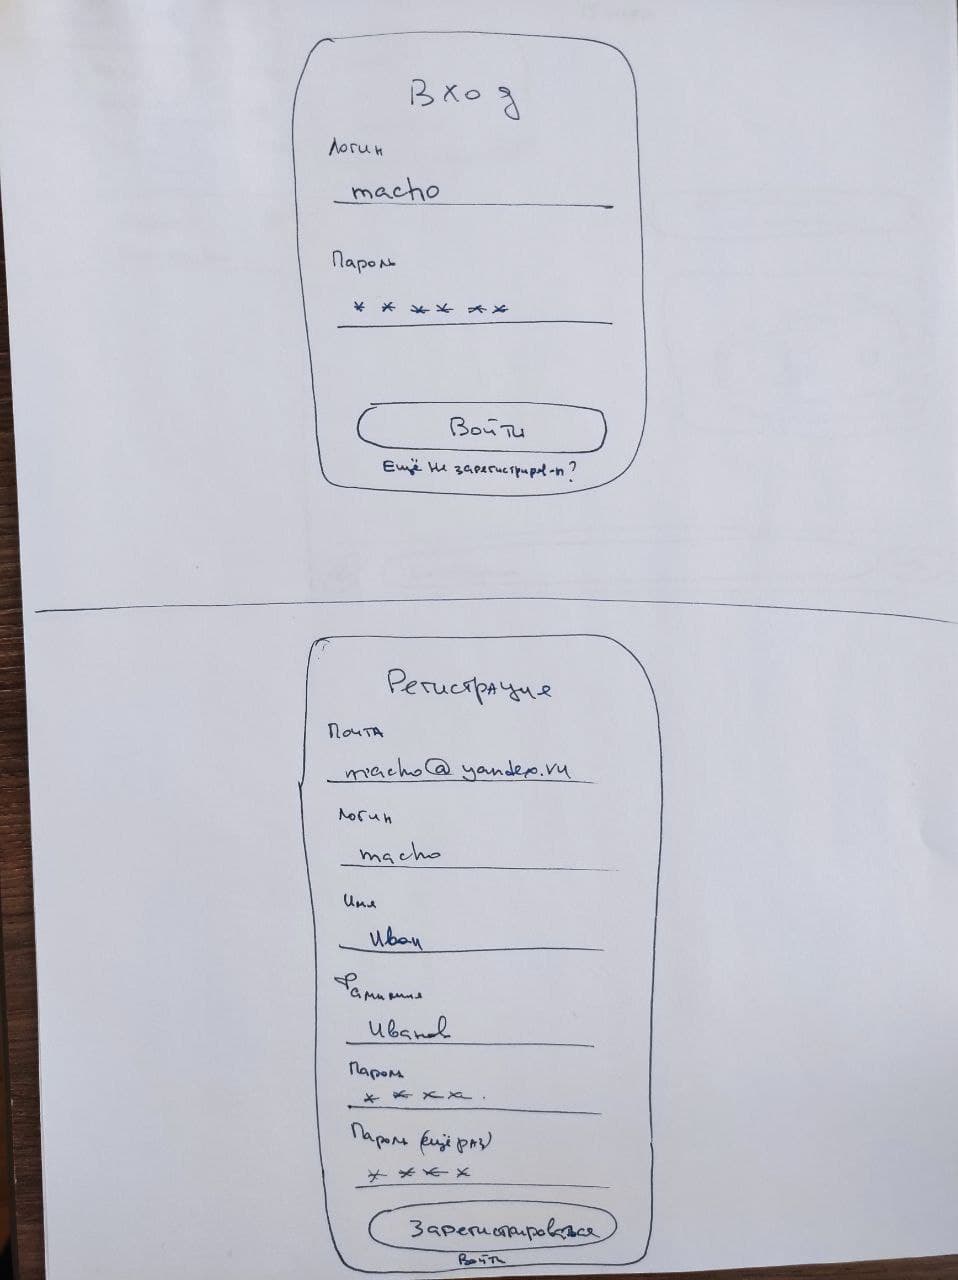 Вход
Логин
macho
Пароль
* * * * * *
Войти
Ещё не зарегистрир-н?
Регистрация
Почта
macho@yandex.ru
Логин
macho
Имя
Иван
Фамилия
Иванов
Пароль
* * * *
Пароль (ещё раз)
* * * *
Зарегистрироваться
Войти